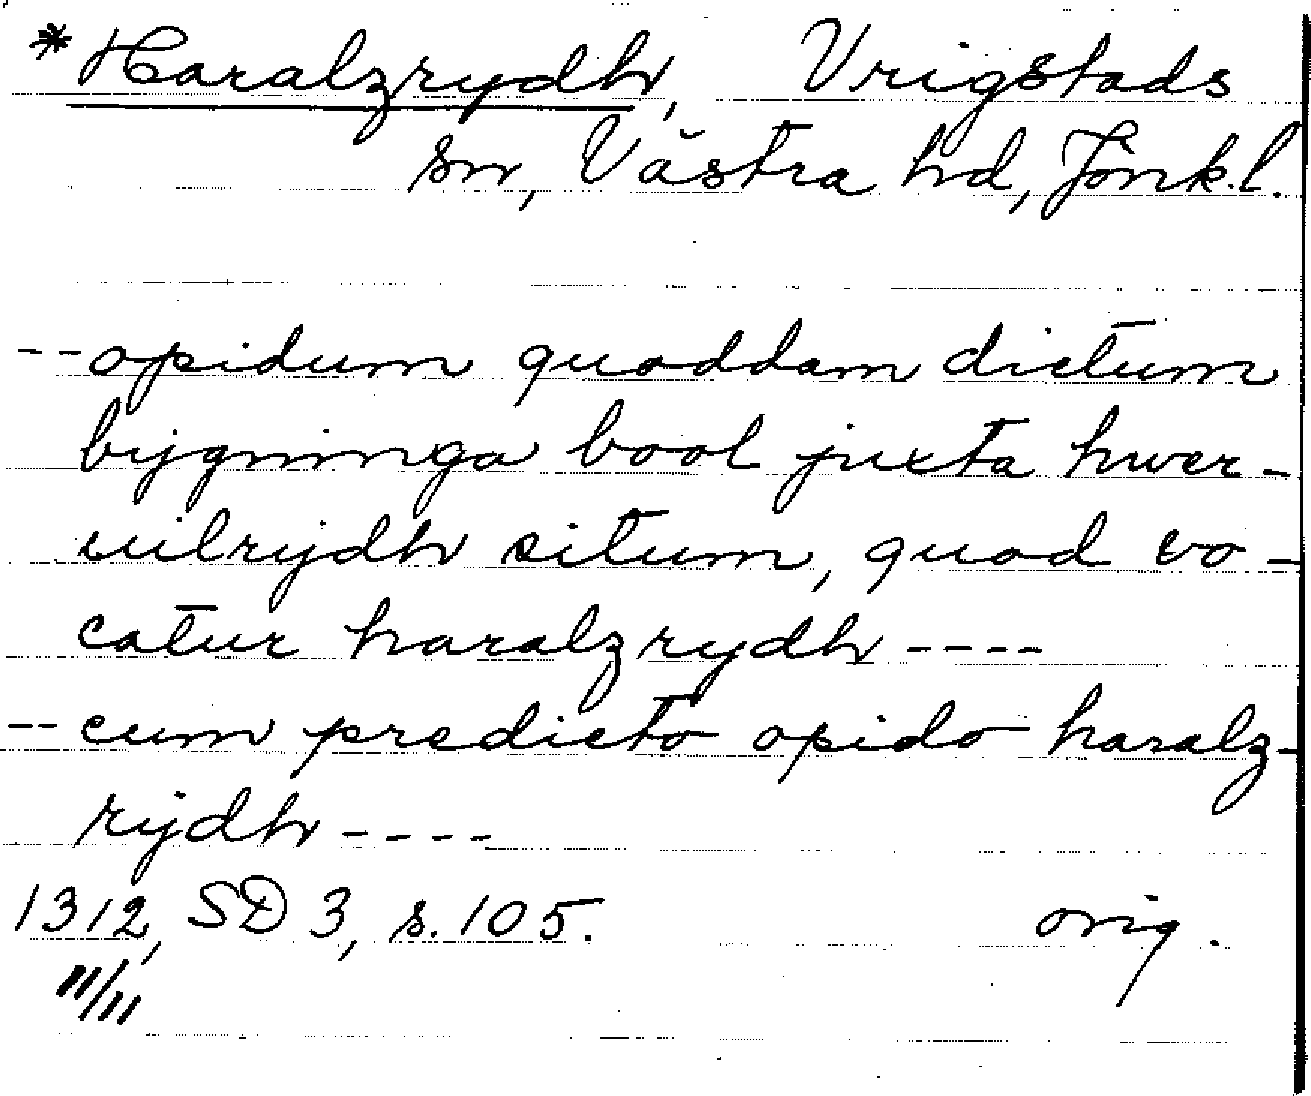 *Haralzrydh, Vrigstads
sn, Västra hd, Jönk.l.
--opidum quoddam dictum
bijgninga bool juxta hwer-
uilrijdh situm, quod vo-
catur haralzrydh----
--cum predicto opido haralz-
rijdh----
1312, SD 3, s. 105. orig.
11/11